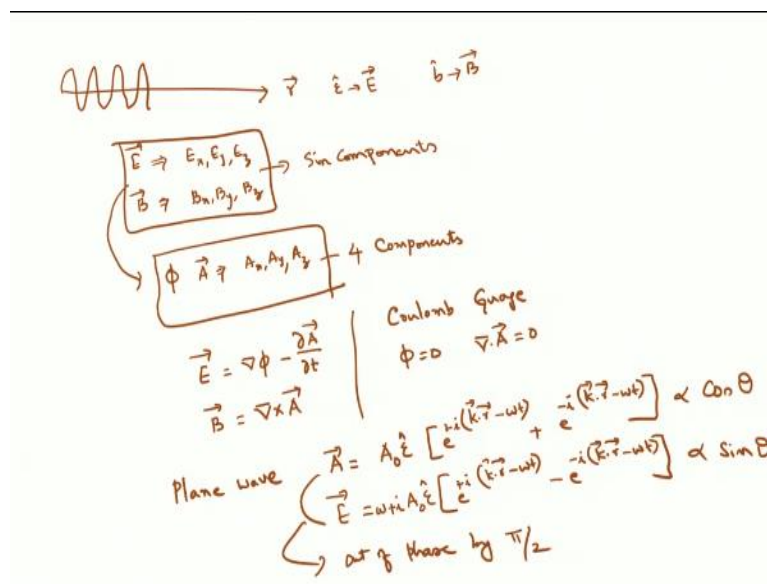 r⃗ ε̂→E⃗ b̂→B⃗
E⃗ ⇒ Ex, Ey, Ez
B⃗ ⇒ Bx, By, Bz → Six Components
ϕ A⃗ ⇒ Ax, Ay, Az – 4 Components
E⃗ = ∇ϕ - ∂A⃗/∂t
B⃗ = ∇×A⃗
Coulomb Guage
ϕ=0 ∇.A⃗=0
Plane wave A⃗ = A₀ε̂ [e^{+i(k⃗.r⃗-ωt)} + e^{-i(k⃗.r⃗-ωt)}] ∝ Cosθ
E⃗ = ω+i A₀ε̂ [e^{+i(k⃗.r⃗-ωt)} - e^{-i(k⃗.r⃗-ωt)}] ∝ Sinθ
out of phase by π/2